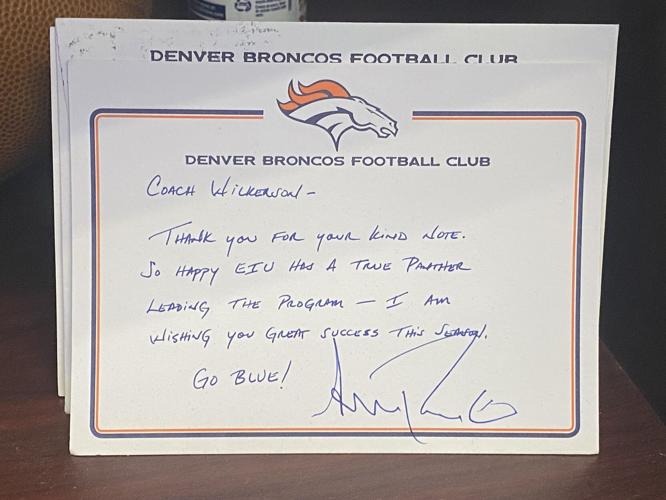 DENVER BRONCOS FOOTBALL CLUB
DENVER BRONCOS FOOTBALL CLUB
COACH WILKERSON -
THANK YOU FOR YOUR KIND NOTE.
SO HAPPY EIU HAS A TRUE PANTHER
LEADING THE PROGRAM - I AM
WISHING YOU GREAT SUCCESS THIS SEASON.
GO BLUE!